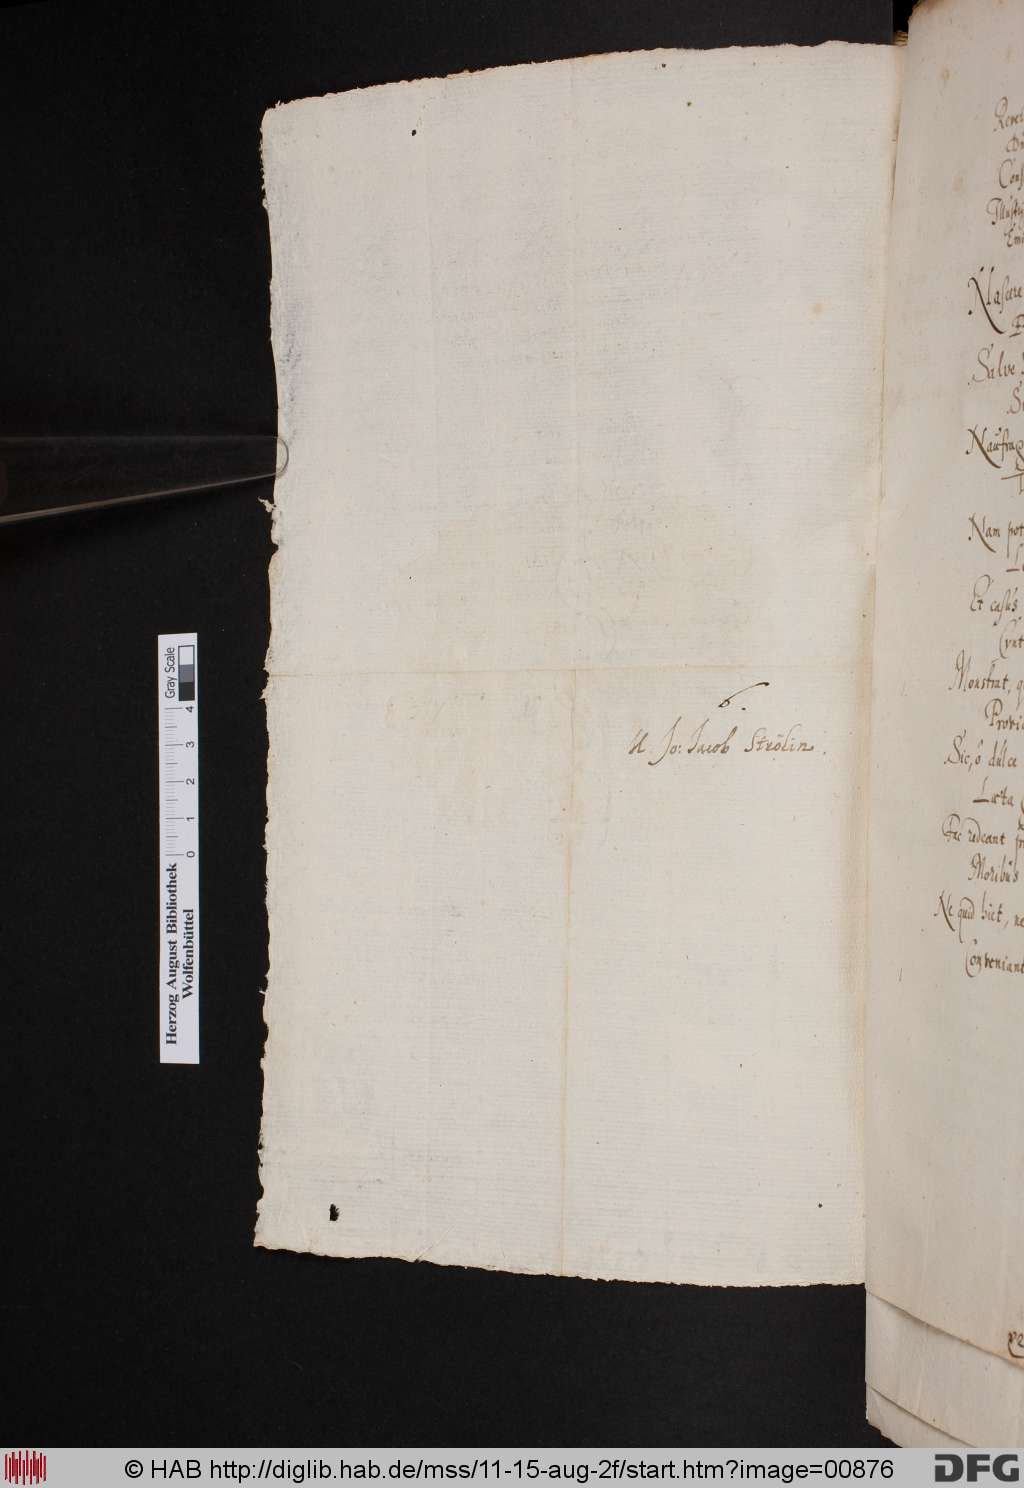 6.
M. Jo: Jacob Strölin.
Nascere
Salve
Naufrag
Nam pot
Et casus
Monstrat, q
Provid
Sic, ô dulce
Læta
Fac redeant
Moribus
Ne quid hiet, ne
Conveniant
Herzog August Bibliothek
Wolfenbüttel
0 1 2 3 4
Gray Scale
© HAB http://diglib.hab.de/mss/11-15-aug-2f/start.htm?image=00876
DFG